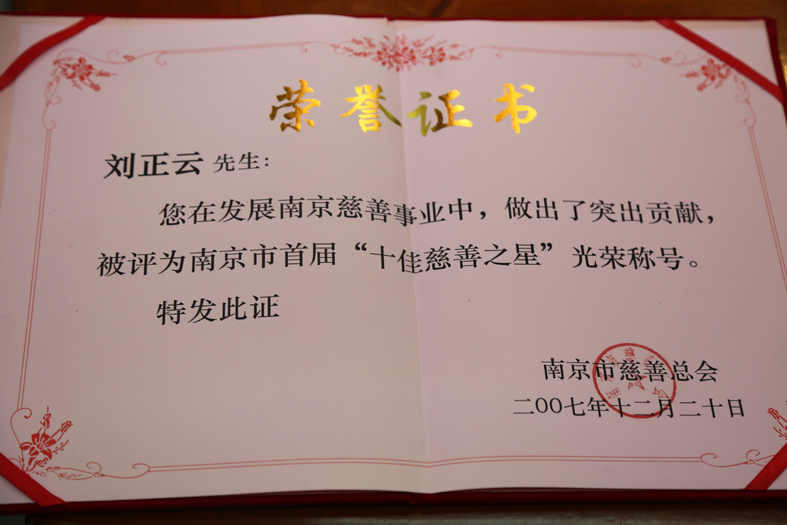 荣誉证书
刘正云 先生：
您在发展南京慈善事业中，做出了突出贡献，
被评为南京市首届“十佳慈善之星”光荣称号。
特发此证
南京市慈善总会
二〇〇七年十二月二十日